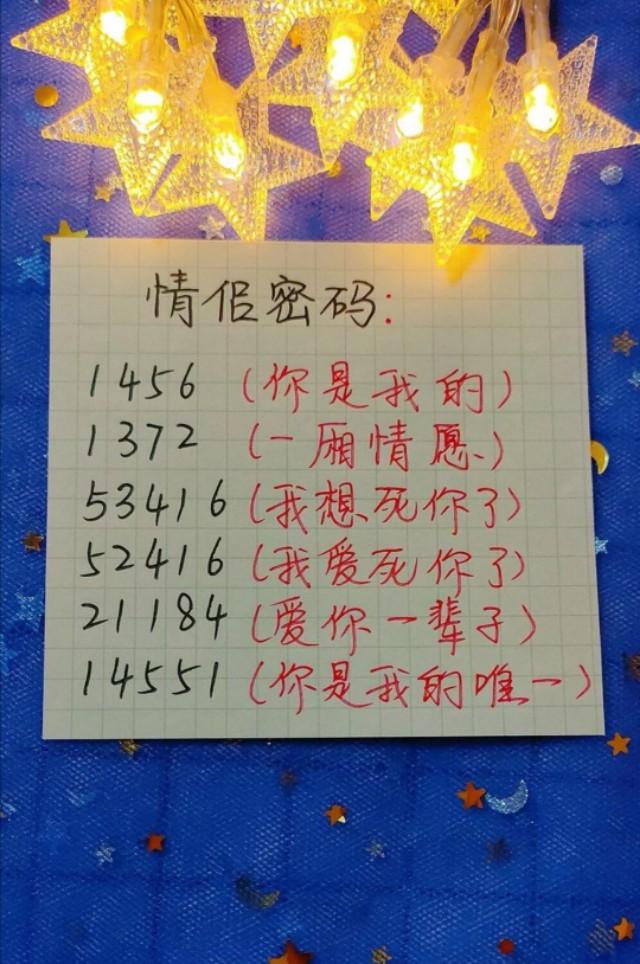 情侣密码:
1456 (你是我的)
1372 (一厢情愿)
53416 (我想死你了)
52416 (我爱死你了)
21184 (爱你一辈子)
14551 (你是我的唯一)